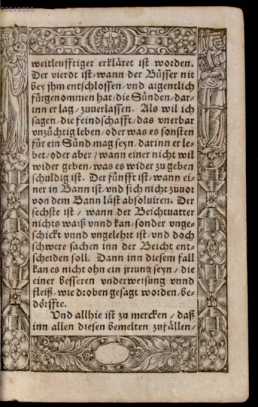 weitleufftiger erkläret ist worden.
Der vierdt ist / wann der Büsser nit
bey jhm entschlossen / vnd aigentlich
fürgenommen hat / die Sünden / dar-
inn er lag / zuuerlassen. Als wil ich
sagen / die feindschafft / das vnerbar
vnzüchtig leben / oder was es sonsten
für ein Sünd mag seyn / darinn er le-
bet / oder aber / wann einer nicht wil
wider geben / was er wider zu geben
schuldig ist. Der fünfft ist / wann ei-
ner in Bann ist / vnd sich nicht zuuor
von dem Bann läst absoluiren. Der
sechste ist / wann der Beichtuatter
nichts waiß vnnd kan / sonder vnge-
schickt vnnd vngelehrt ist / vnd doch
schwere sachen inn der Beicht ent-
scheiden soll. Dann inn diesem fall
kan es nicht ohn ein / die
einer besseren vnderweisung vnnd
fleiß / wie droben gesagt worden / be-
dörffte.
Vnd allhie ist zu mercken / daß
inn allen diesen bemelten zufällen /